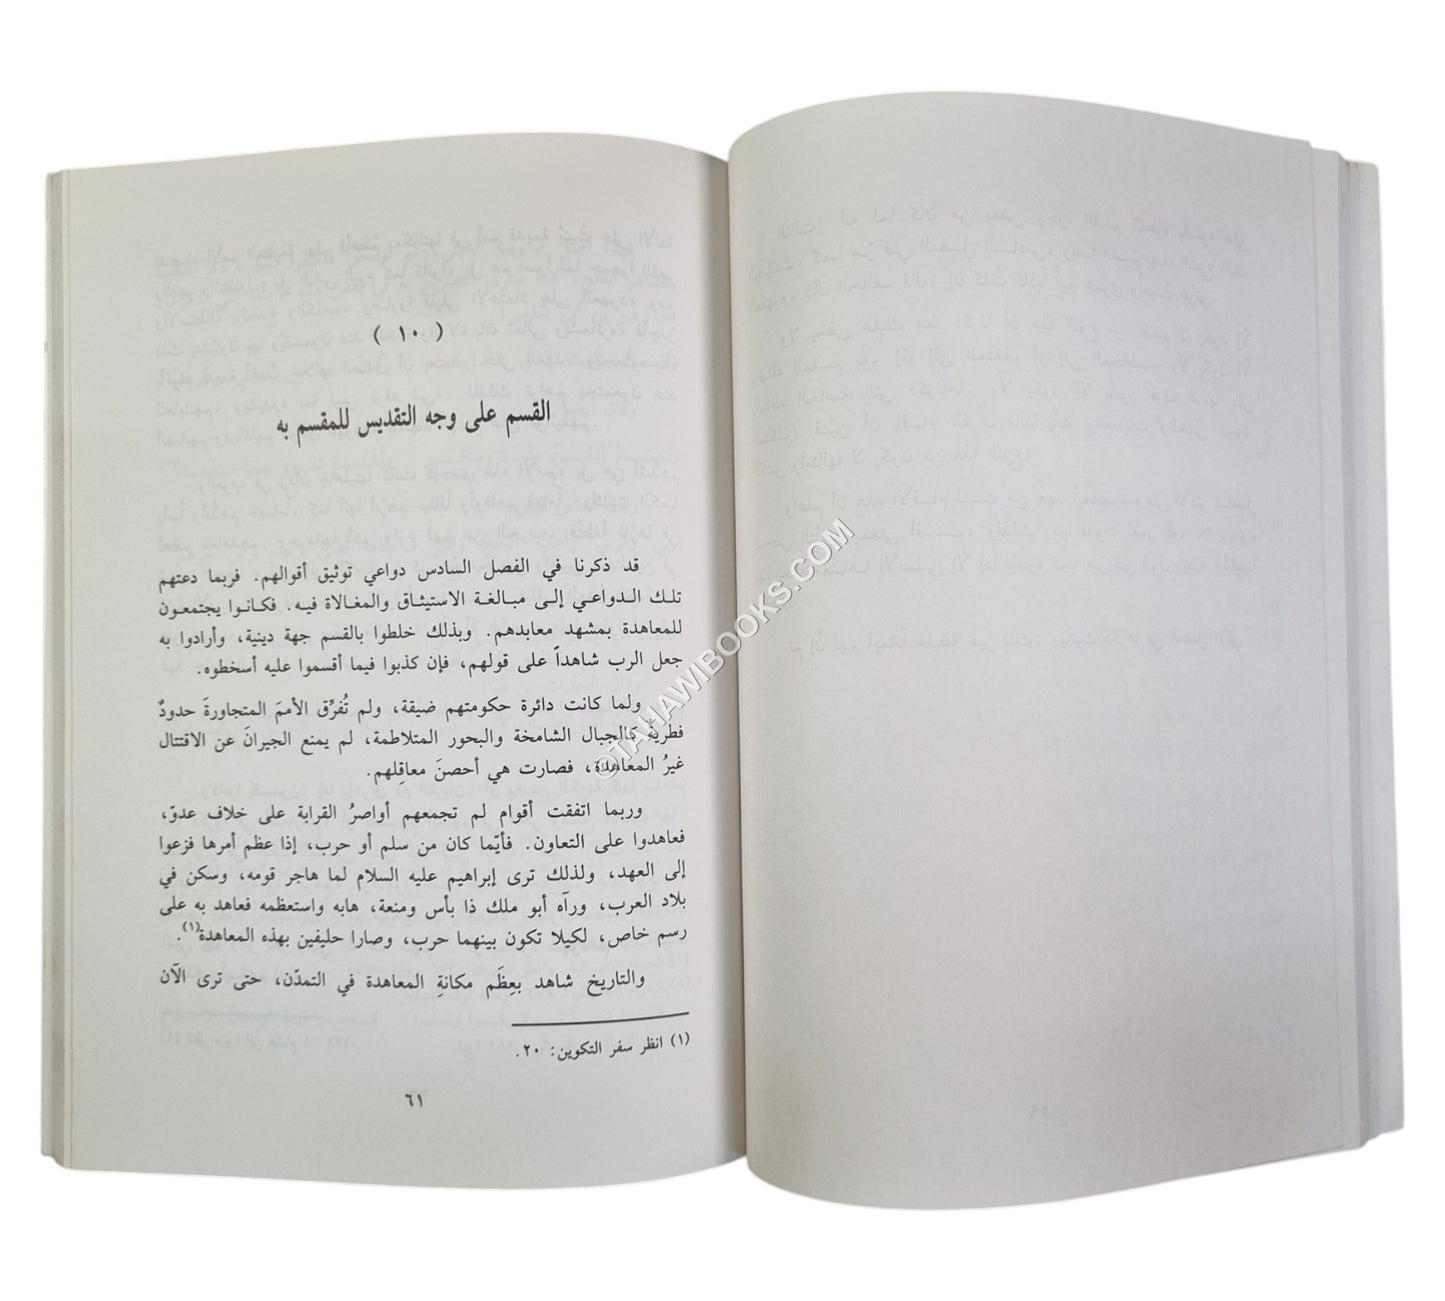 ( ١٠ )
القسم على وجه التقديس للمقسم به
قد ذكرنا في الفصل السادس دواعي توثيق أقوالهم. فربما دعتهم
تلك الدواعي إلى مبالغة الاستيثاق والمغالاة فيه. فكانوا يجتمعون
للمعاهدة بمشهد معابدهم. وبذلك خلطوا بالقسم جهة دينية، وأرادوا به
جعل الرب شاهداً على قولهم، فإن كذبوا فيما أقسموا عليه أسخطوه.
ولما كانت دائرة حكومتهم ضيقة، ولم تُفرِّق الأممَ المتجاورةَ حدودٌ
فطريةٌ كالجبال الشامخة والبحور المتلاطمة، لم يمنع الجيرانَ عن الاقتتال
غيرُ المعاهدة، فصارت هي أحصنَ معاقِلهم.
وربما اتفقت أقوام لم تجمعهم أواصرُ القرابة على خلاف عدوّ،
فعاهدوا على التعاون. فأيّما كان من سلم أو حرب، إذا عظم أمرها فزعوا
إلى العهد، ولذلك ترى إبراهيم عليه السلام لما هاجر قومه، وسكن في
بلاد العرب، ورآه أبو ملك ذا بأس ومنعة، هابه واستعظمه فعاهد به على
رسم خاص، لكيلا تكون بينهما حرب، وصارا حليفين بهذه المعاهدة(١).
والتاريخ شاهد بعِظَم مكانةِ المعاهدة في التمدّن، حتى ترى الآن
(١) انظر سفر التكوين: ٢٠.
٦١
©TAHAWIBOOKS.COM